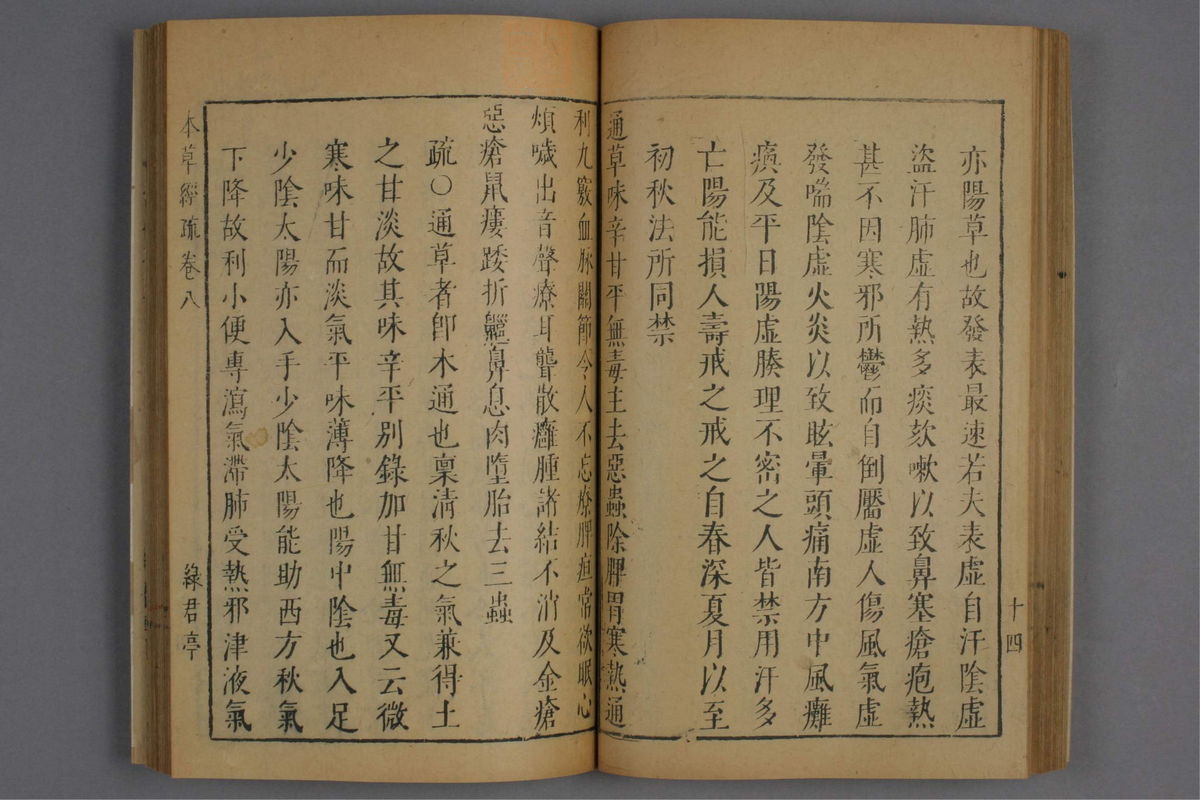 十四
亦陽草也故發表最速若夫表虛自汗陰虛
盜汗肺虛有熱多痰欬嗽以致鼻塞瘡疱熱
甚不因寒邪所鬱而自倒靨虛人傷風氣虛
發喘陰虛火炎以致眩暈頭痛南方中風癱
瘓及平日陽虛腠理不密之人皆禁用汗多
亡陽能損人壽戒之戒之自春深夏月以至
初秋法所同禁
通草味辛甘平無毒主去惡蟲除脾胃寒熱通
利九竅血脉關節令人不忘療脾疸常欲眠心
煩噦出音聲療耳聾散癰腫諸結不消及金瘡
惡瘡鼠瘻踒折齆鼻息肉墮胎去三蟲
疏〇通草者卽木通也稟淸秋之氣兼得土
之甘淡故其味辛平別錄加甘無毒又云微
寒味甘而淡氣平味薄降也陽中陰也入足
少陰太陽亦入手少陰太陽能助西方秋氣
下降故利小便專瀉氣滯肺受熱邪津液氣
本草經疏 卷八
綠君亭